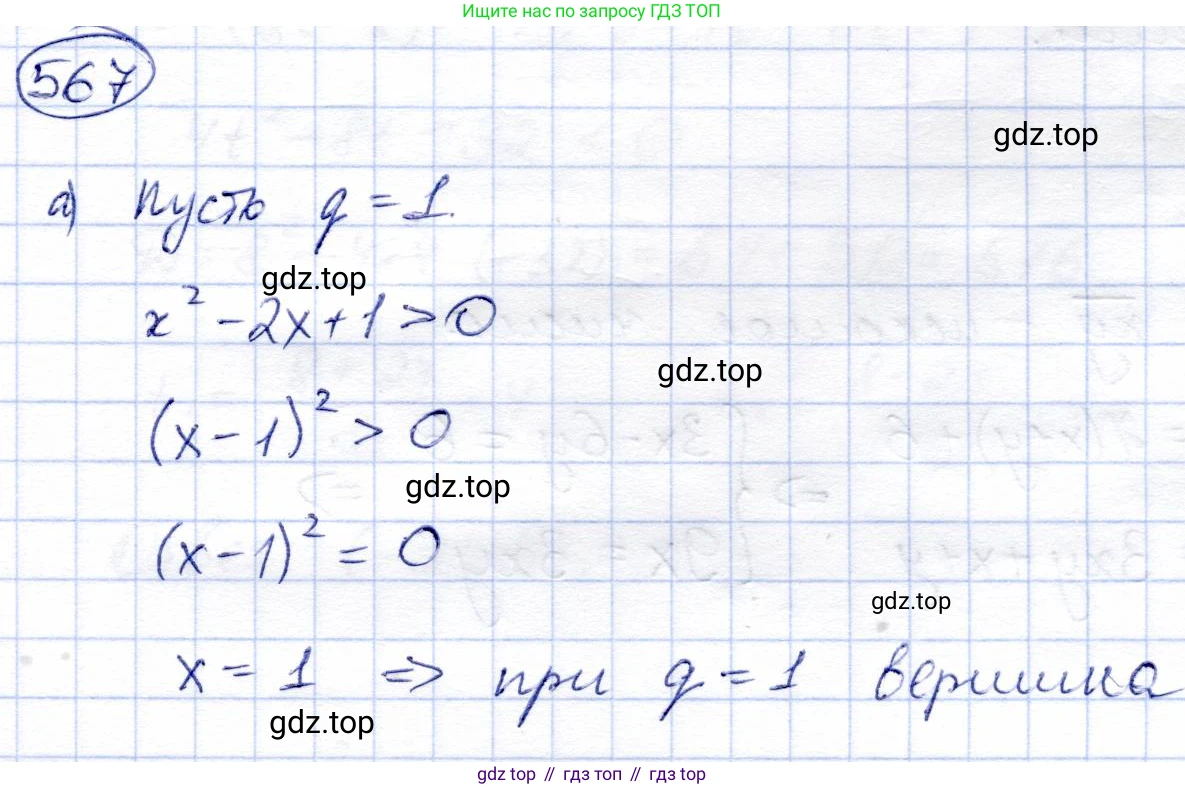 Ищите нас по запросу ГДЗ ТОП
567
gdz.top
а) Пусть q = 1.
gdz.top
x² - 2x + 1 > 0
gdz.top
(x - 1)² > 0
gdz.top
(x - 1)² = 0
gdz.top
x = 1 => при q = 1 вершина
gdz.top
gdz top // гдз топ // gdz top